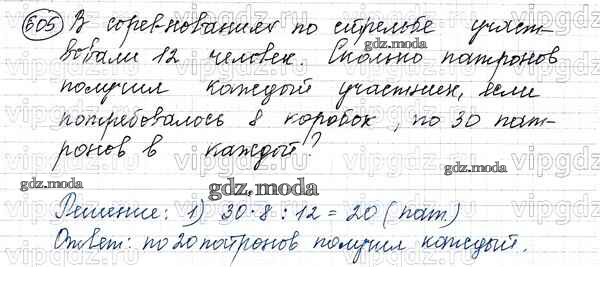 605 В соревнованиях по стрельбе участ-
вовали 12 человек. Сколько патронов
получил каждый участник, если
потребовалось 8 коробок, по 30 пат-
ронов в каждой?
Решение: 1) 30·8:12=20 (пат)
Ответ: по 20 патронов получил каждый.
gdz.moda
gdz.moda
gdz.moda
gdz.moda
vipgdz.ru